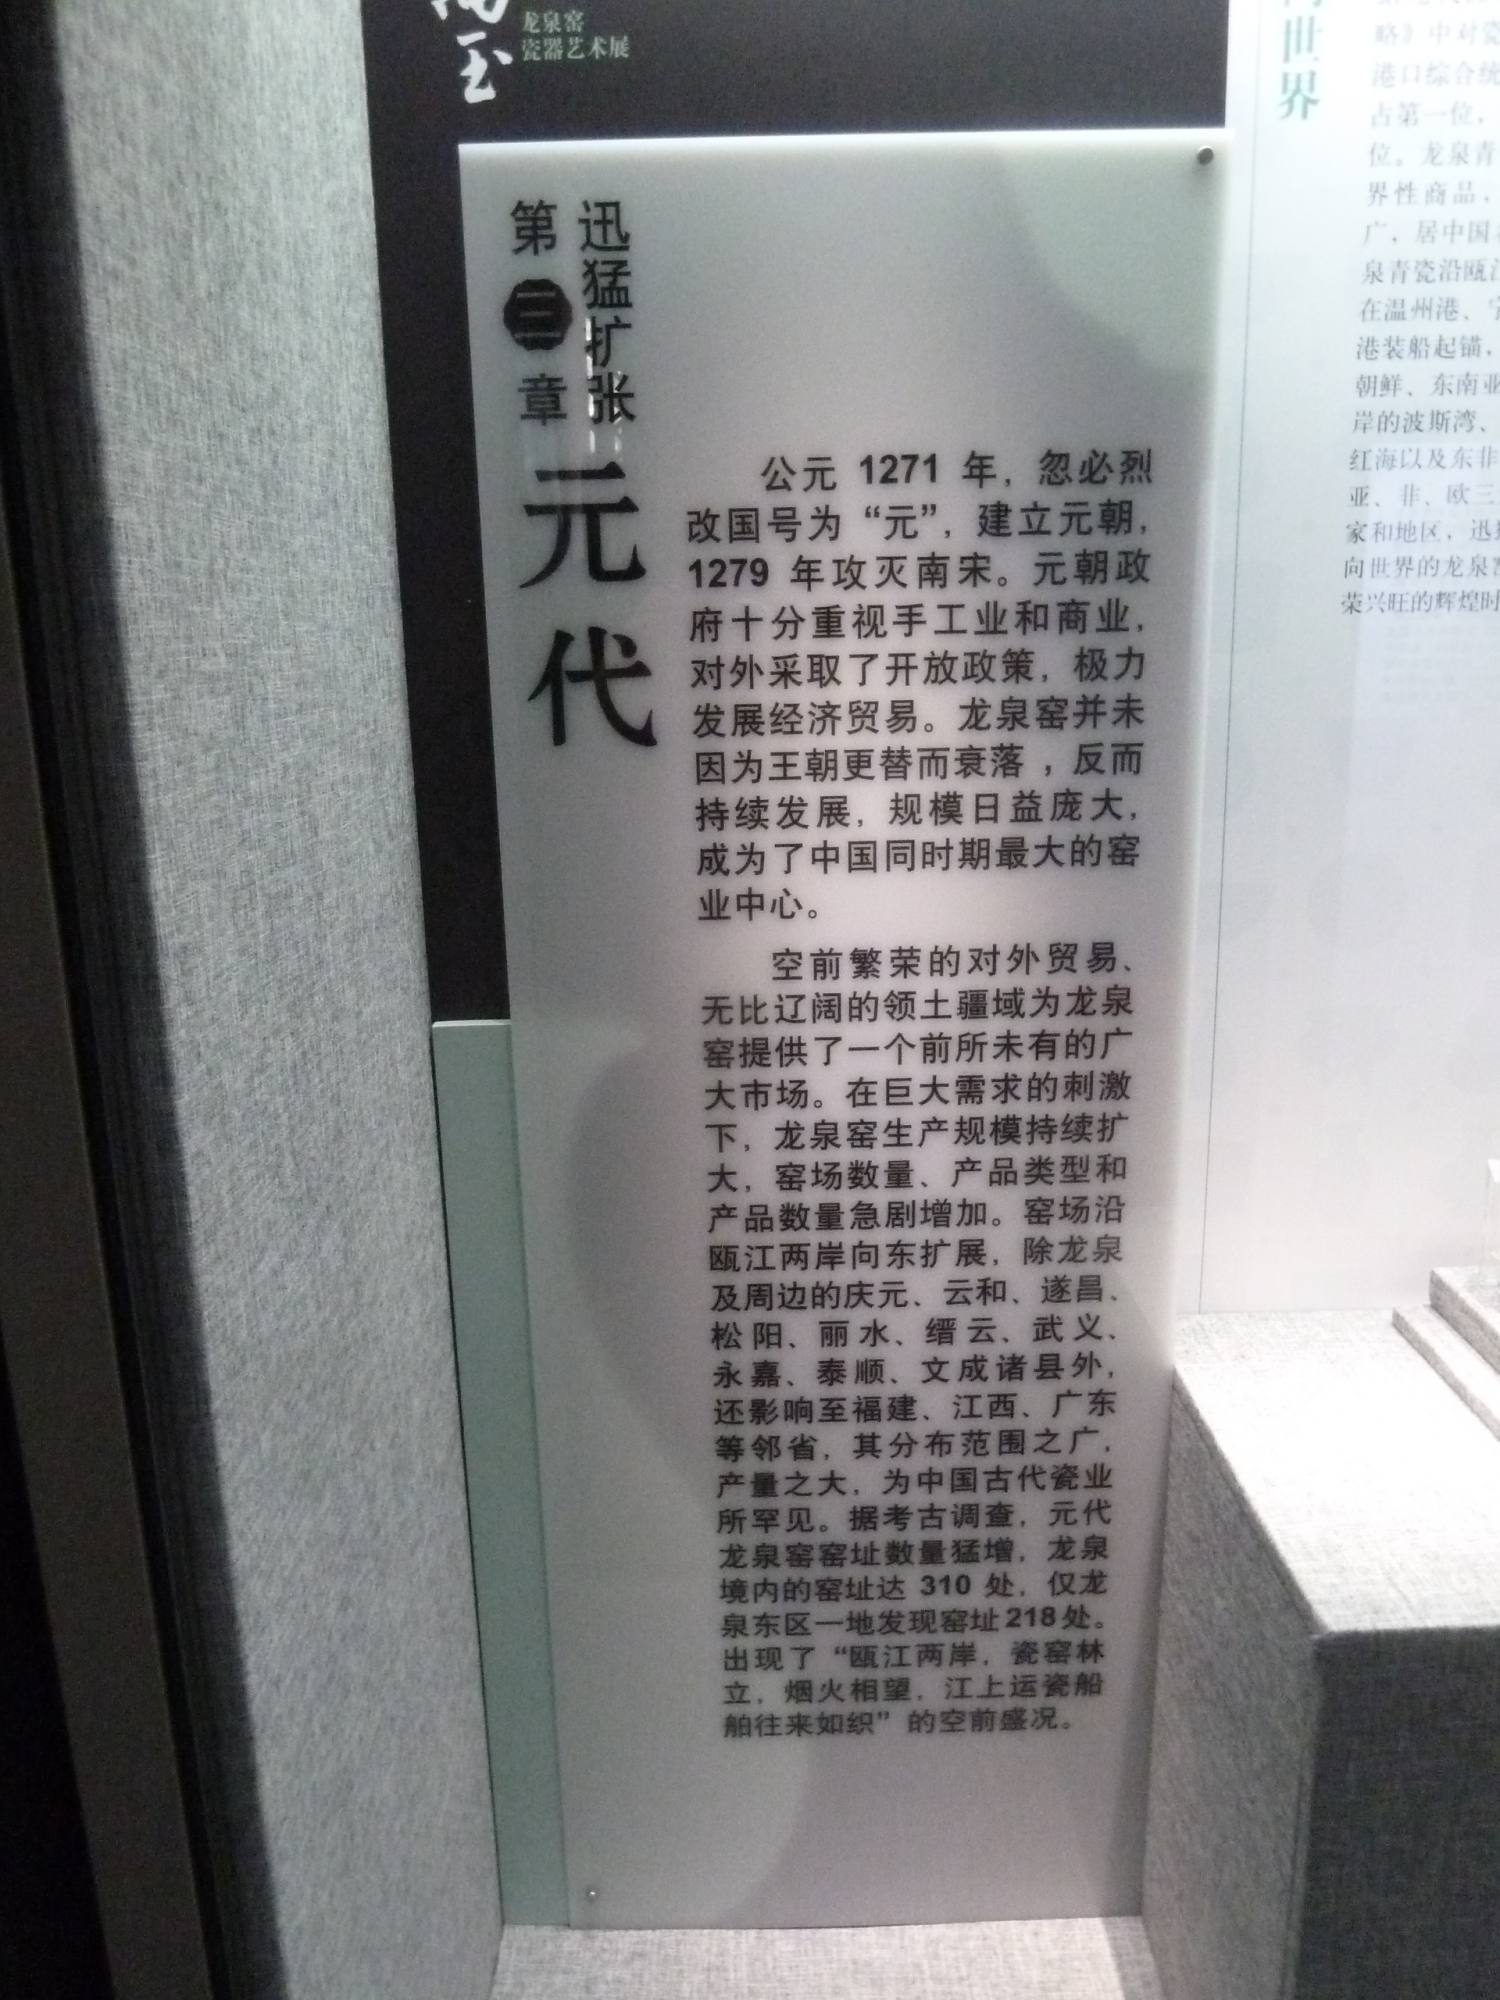 玉
龙泉窑
瓷器艺术展
第三章
迅猛扩张
元代
公元 1271 年，忽必烈
改国号为“元”，建立元朝，
1279 年攻灭南宋。元朝政
府十分重视手工业和商业，
对外采取了开放政策，极力
发展经济贸易。龙泉窑并未
因为王朝更替而衰落，反而
持续发展，规模日益庞大，
成为了中国同时期最大的窑
业中心。
空前繁荣的对外贸易、
无比辽阔的领土疆域为龙泉
窑提供了一个前所未有的广
大市场。在巨大需求的刺激
下，龙泉窑生产规模持续扩
大，窑场数量、产品类型和
产品数量急剧增加。窑场沿
瓯江两岸向东扩展，除龙泉
及周边的庆元、云和、遂昌、
松阳、丽水、缙云、武义、
永嘉、泰顺、文成诸县外，
还影响至福建、江西、广东
等邻省，其分布范围之广，
产量之大，为中国古代瓷业
所罕见。据考古调查，元代
龙泉窑窑址数量猛增，龙泉
境内的窑址达 310 处，仅龙
泉东区一地发现窑址218处。
出现了“瓯江两岸，瓷窑林
立，烟火相望，江上运瓷船
舶往来如织”的空前盛况。
世界
略》中对瓷
港口综合统
占第一位，
位。龙泉青
界性商品，
广，居中国
泉青瓷沿瓯江
在温州港、宁
港装船起锚，
朝鲜、东南亚
岸的波斯湾、
红海以及东非
亚、非、欧三
家和地区，迅
向世界的龙泉窑
荣兴旺的辉煌时